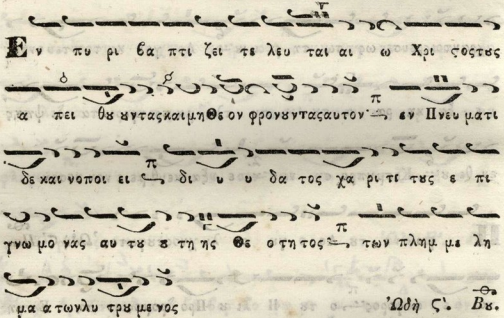 Εν πυ ρι βα πτι ζει τε λευ ται αι ω Χρι τοςτȣς
α πει θȣ ȣντας και μη Θε ον φρονȣντας αυτον π εν Πνευ ματι
δε και νοποι ει π δι υ υ δα τος χα ρι τι τȣς ε πι
γνω μο νας αυ τȣ ȣ τη ης Θε ο τη τος π των πλημ με λη
μα α των λυ τρȣ με νος Ὠδὴ ϛʹ. Βȣ.